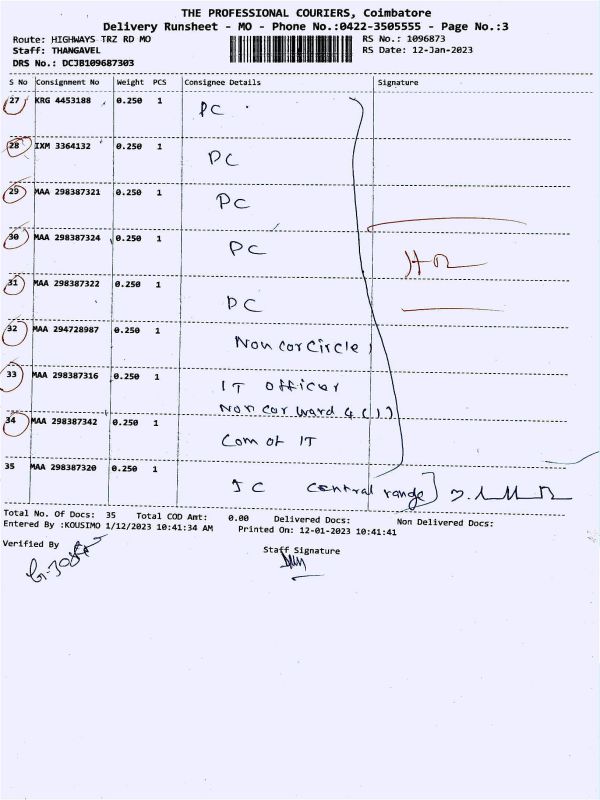 THE PROFESSIONAL COURIERS, Coimbatore
Delivery Runsheet - MO - Phone No.:0422-3505555 - Page No.:3
Route: HIGHWAYS TRZ RD MO
RS No.: 1096873
Staff: THANGAVEL
RS Date: 12-Jan-2023
DRS No.: DCJB109687303
S No Consignment No Weight PCS Consignee Details Signature
27 KRG 4453188 0.250 1 PC
28 IXM 3364132 0.250 1 PC
29 MAA 298387321 0.250 1 PC
30 MAA 298387324 0.250 1 PC
31 MAA 298387322 0.250 1 PC
32 MAA 294728987 0.250 1 Non cor circle
33 MAA 298387316 0.250 1 IT officer
Non cor ward 4 (1)
34 MAA 298387342 0.250 1 Com of IT
35 MAA 298387320 0.250 1 JC central range
Total No. Of Docs: 35 Total COD Amt: 0.00 Delivered Docs: Non Delivered Docs:
Entered By :KOUSIMO 1/12/2023 10:41:34 AM Printed On: 12-01-2023 10:41:41
Verified By
Staff Signature